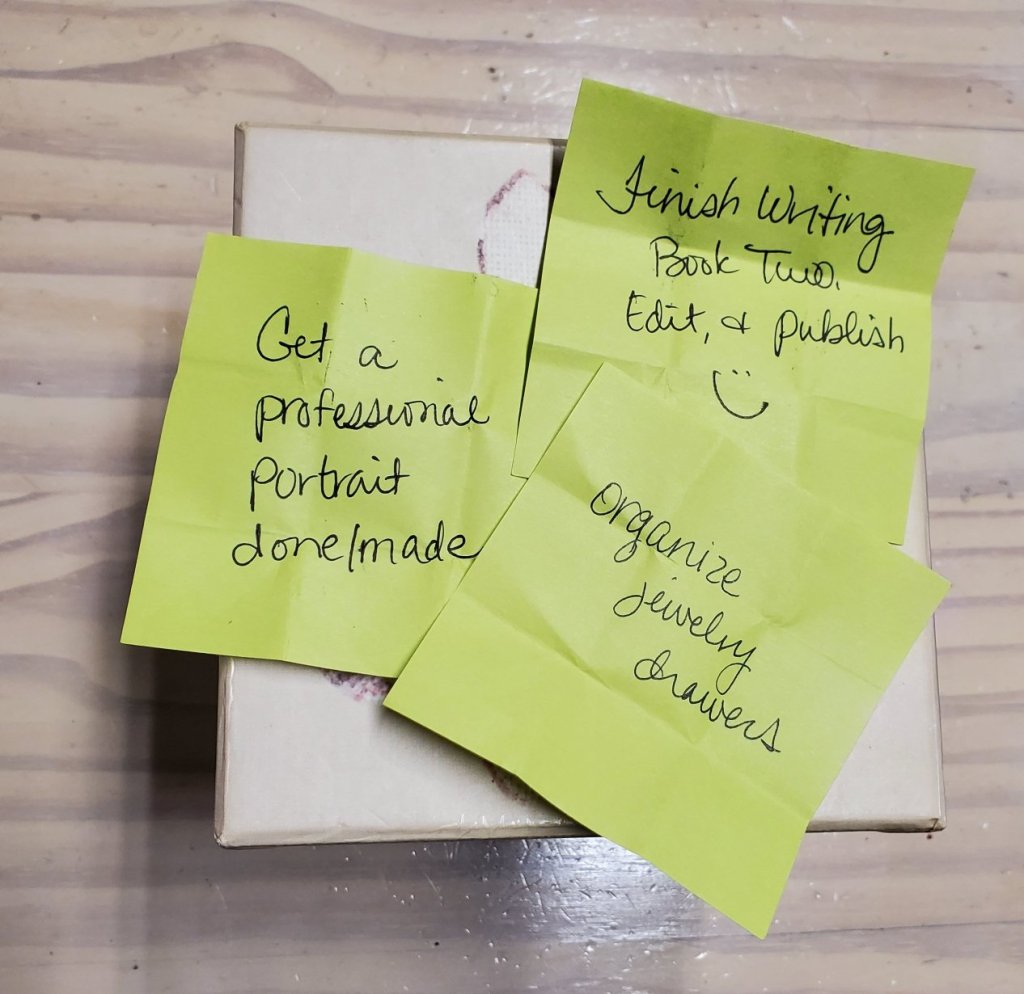 Get a
professional
portrait
done/made
Finish Writing
Book Two.
Edit, & publish
organize
jewelry
drawers